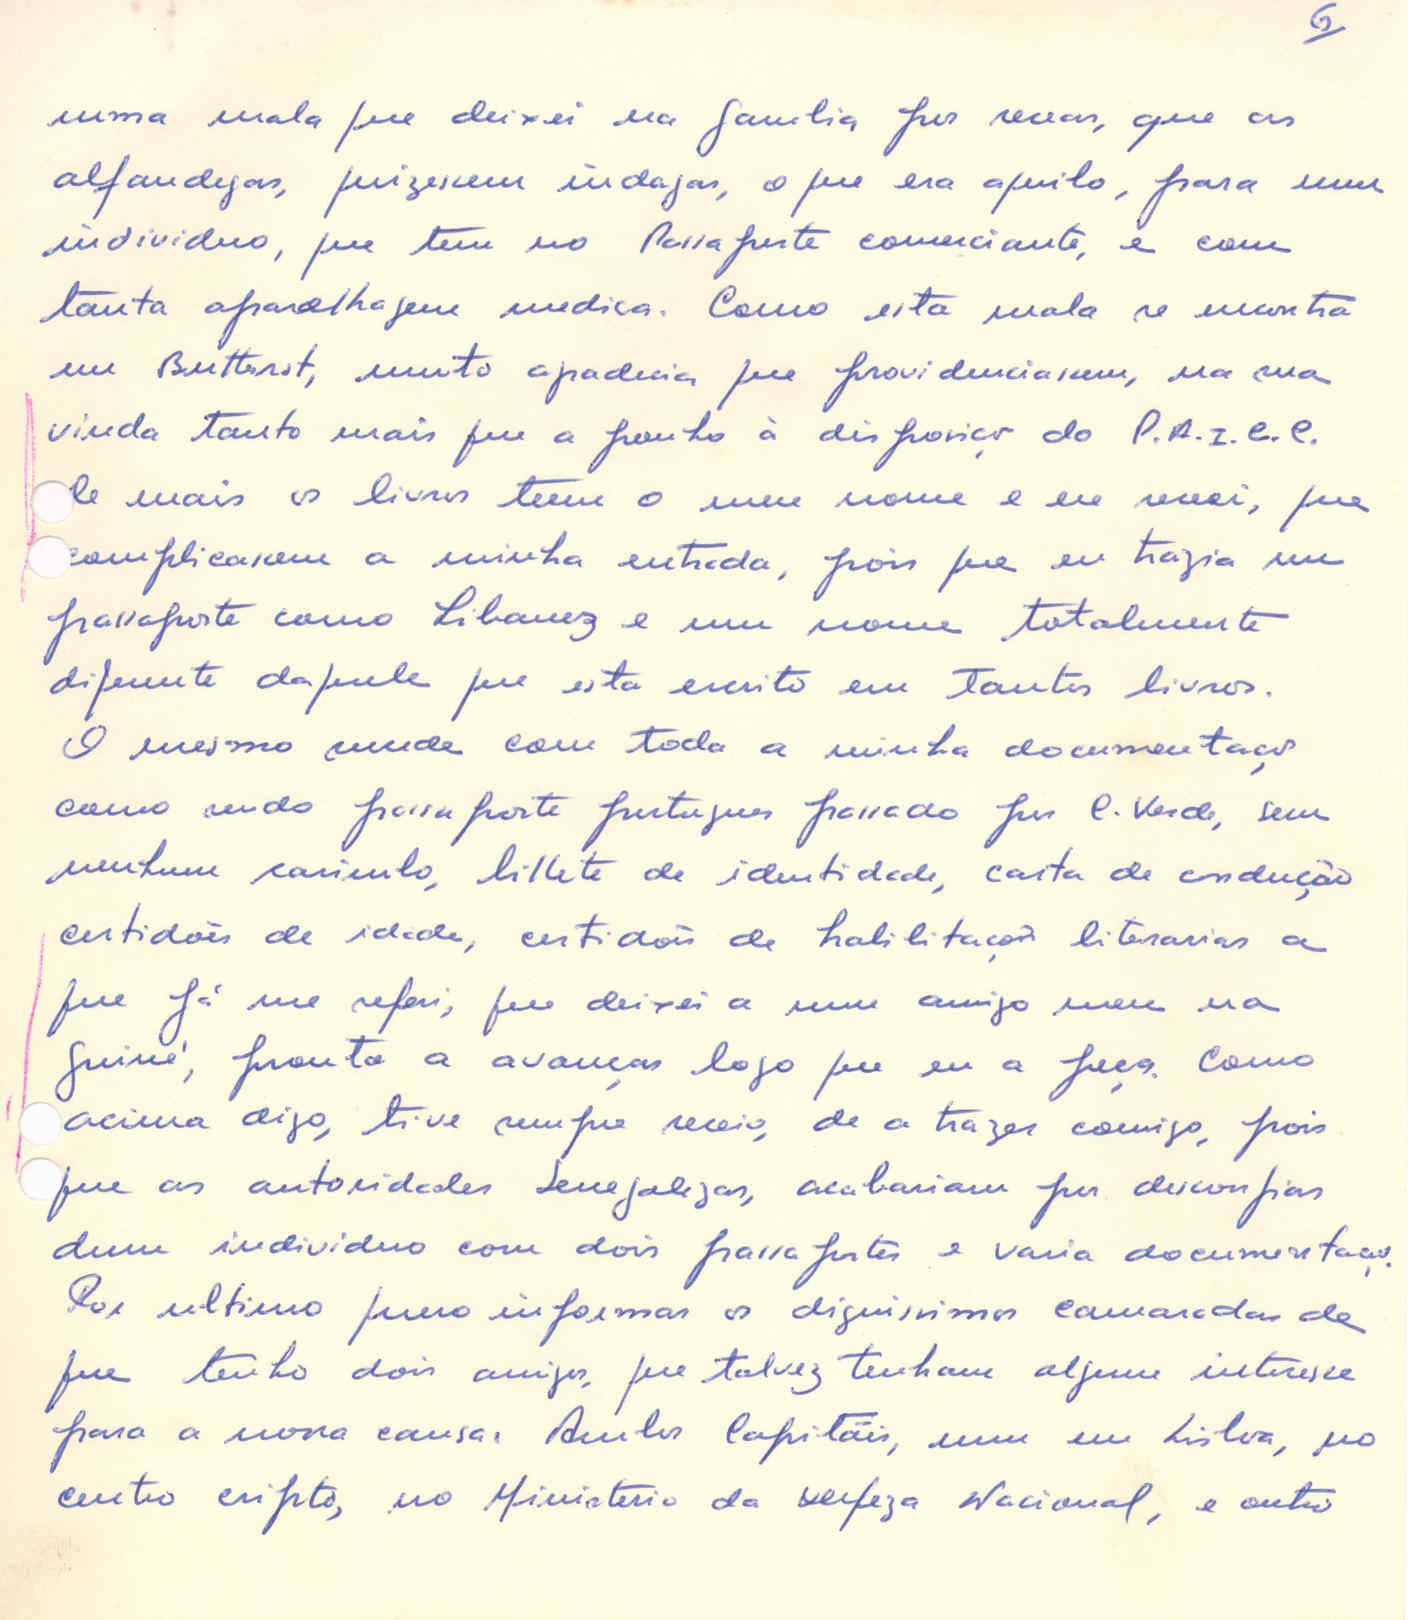 6
numa mala que deixei na Gambia por recear, que as
alfandegas, quizessem indagar, o que era aquilo, para um
individuo, que tem no Passaporte comerciante, e com
tanta aparelhagem medica. Como esta mala se encontra
em muito agradecia que providenciassem, na sua
vinda tanto mais que a ponho à disposiçõ do P.A.I.G.C.
De mais os livros teem o meu nome e eu receei, que
complicassem a minha entrada, pois que eu trazia um
passaporte como Libanez e um nome totalmente
diferente daquele que esta escrito em tantos livros.
O mesmo sucede com toda a minha documentaçõ
como sendo passaporte portugues passado por C. Verde, sem
nenhum carimbo, bilhete de identidade, carta de condução
certidões de idade, certidões de habilitações literarias a
que já me referi, que deixei a um amigo meu na
Guiné, pronta a avançar logo que eu a peça. Como
acima digo, tive sempre receio, de a trazer comigo, pois
que as autoridades Senegalezas, acabariam por desconfiar
dum individuo com dois passaportes e varia documentaçõ.
Por ultimo quero informar os dignissimos camaradas de
que tenho dois amigos, que talvez tenham algum interesse
para a nossa causa. Ambos Capitães, um em Lisboa, no
centro cripto, no Ministerio da Defeza Nacional, e outro